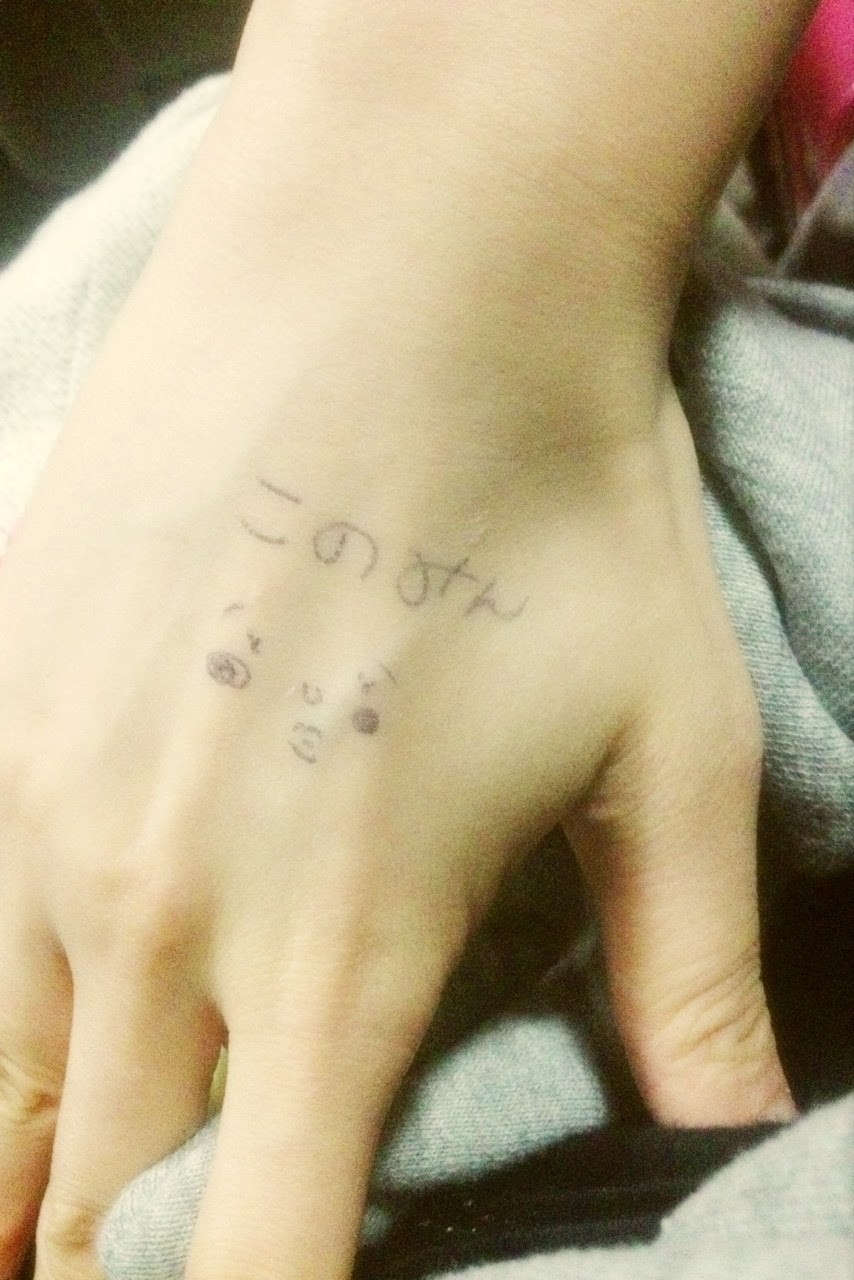 このみん